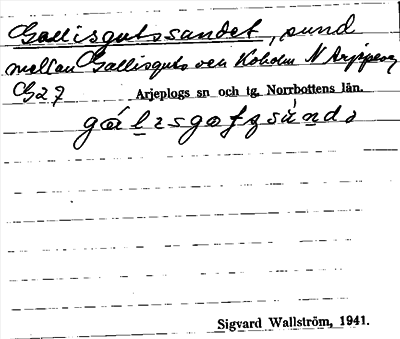 Gallisgutssundet, sund
mellan Gallisguts och Koholm N Arjeplog
G27
Arjeplogs sn och tg. Norrbottens län.
gálisgøtsǝsúndǝ
Sigvard Wallström, 1941.